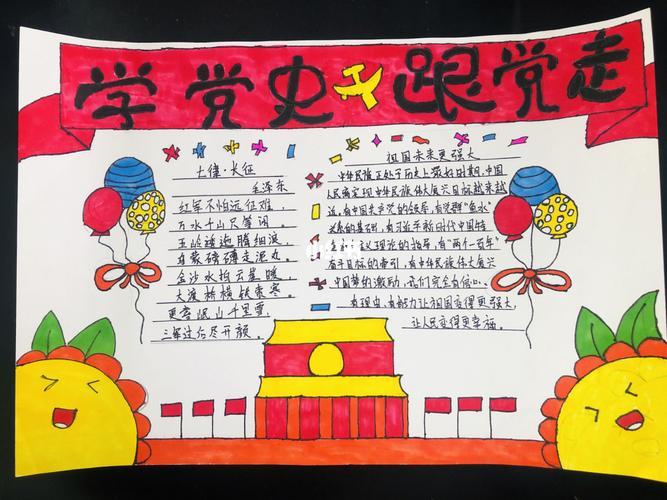 学党史 跟党走
七律·长征
毛泽东
红军不怕远征难,
万水千山只等闲。
五岭逶迤腾细浪,
乌蒙磅礴走泥丸。
金沙水拍云崖暖,
大渡桥横铁索寒。
更喜岷山千里雪,
三军过后尽开颜。
祖国未来更强大
中华民族正处于历史上最好时期,中国
人民离实现中华民族伟大复兴目标越来越
近。有中国共产党的领导,有党群"鱼水"
关系的基础,有习近平新时代中国特
色社会主义理论的指导,有"两个一百年"
奋斗目标的索引,有中华民族伟大复兴
中国梦的激励,我们完全有信心、
有理由、有努力让祖国变得更强大,
让人民变得更幸福。